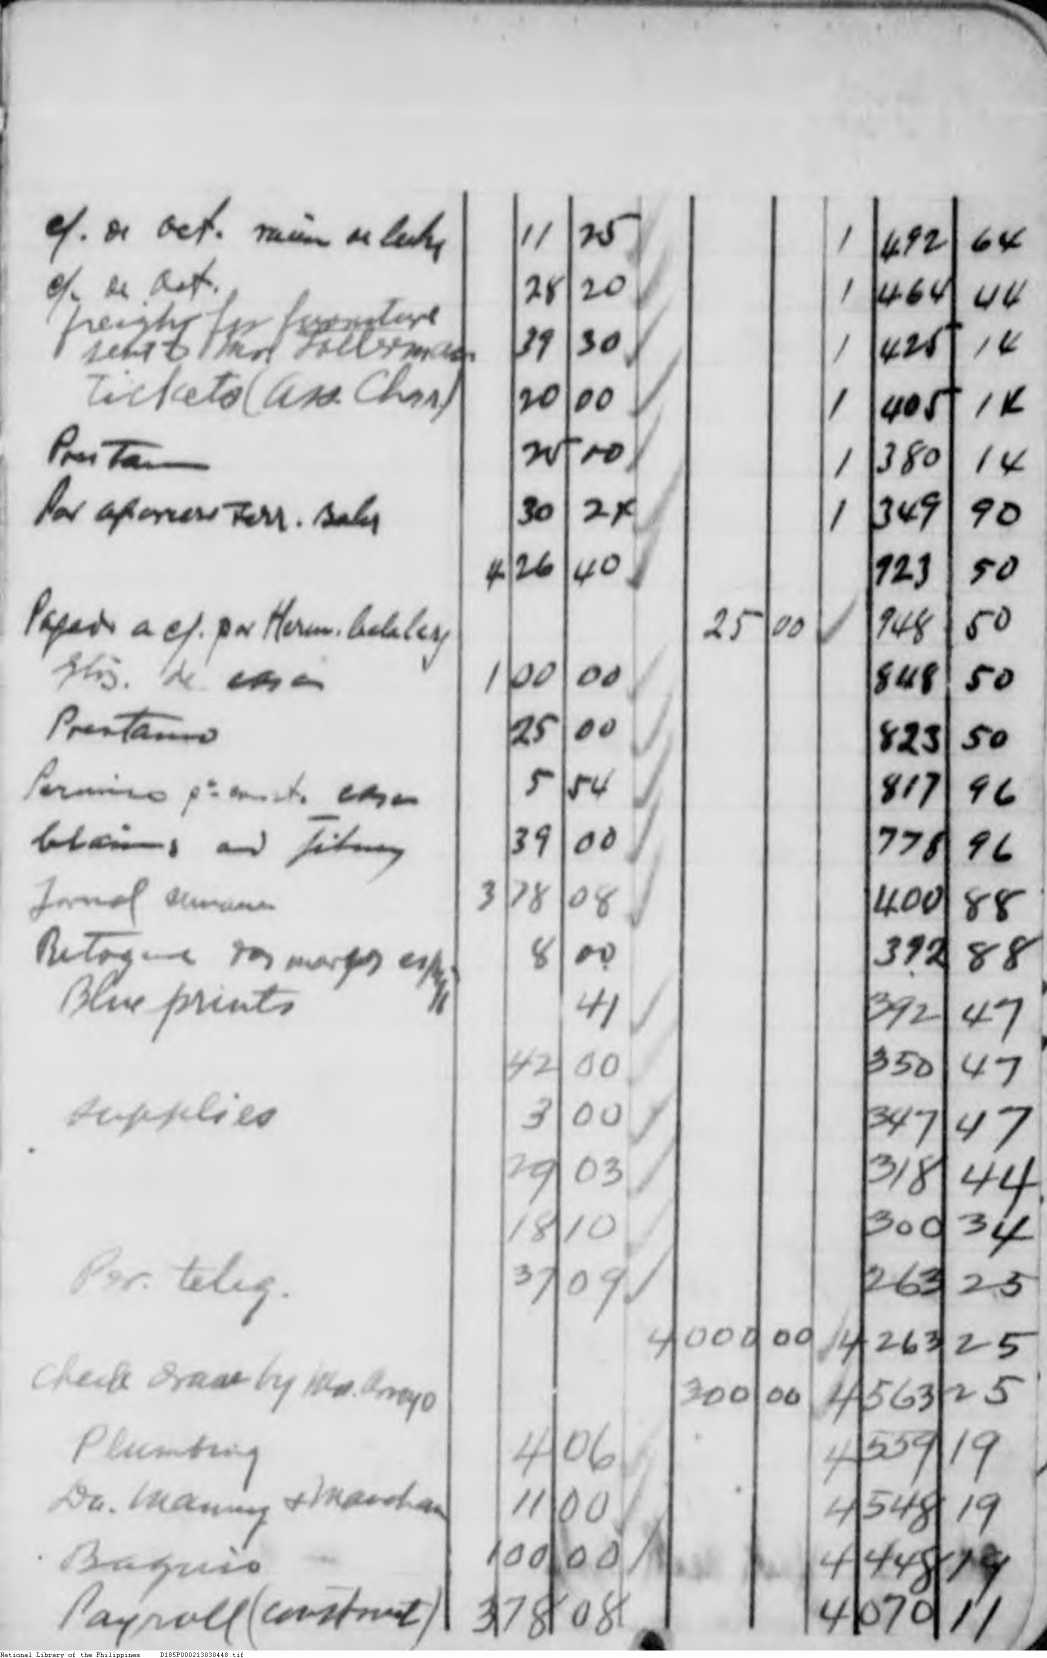 c/. de oct. 11 25 1 492 64
c/. de oct. 28 20 1 464 44
freight for furniture
sent to Mr. 39 30 1 425 14
tickets (Ass. Char) 20 00 1 405 14
Prestamo 25 00 1 380 14
Por 30 24 1 349 90
426 40 923 50
Pagado a c/. por Herm. 25 00 948 50
de casa 100 00 848 50
Prestamo 25 00 823 50
Permiso pa const. casa 5 54 817 96
and 39 00 778 96
Jornal semana 378 08 400 88
Retoque dos 8 00 392 88
Blue prints 41 392 47
42 00 350 47
supplies 3 00 347 47
29 03 318 44
18 10 300 34
Per. teleg. 37 09 263 25
4 000 00 4 263 25
Check drawn by Mrs. Arroyo 300 00 4 563 25
Plumbing 4 06 4 559 19
Drs. Manning & 11 00 4 548 19
Baguio 100 00 4 448 19
Payroll (construct) 378 08 4 070 11
National Library of the Philippines D185P000213030448.tif